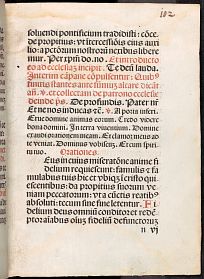 102
soluendi pontificium tradidisti : cōce
de propitius : vt intercessiōis eius auxi
lio : a peccatorum nostrorū nexibus libere
mur. Per xpm̄ do. no. Et introductio
ro ad ecclesiā incipit. Te deū lauda.
Interim cāpane cōpulsentur.
funus stantes ante
℣. et collectam de patrono ecclesie
deinde ps. De profundis. Pater nr̄
Et ne nos inducas. ℣. A porta inferi.
Erue domine animas eorum. Credo videre
bona domini. In terra viuentium. Domine
exaudi orationem meam. Et clamor meus ad
te veniat. Dominus vobiscum. Et cum spiritu
tuo. Orationes.
Eius in cuius miseratiōne anime fi
delium requiescunt : famulis : et fa
mulabus tuis hic et vbiqꝫ in christo qui
escentibus : da propitius suorum ve
niam peccatorum : vt a cunctis reatibꝰ
absoluti : tecum sine fine letentur. Fi
delium deus omniū conditor et redē
ptor : aīabus oīuꝫ fideliū defunctorū